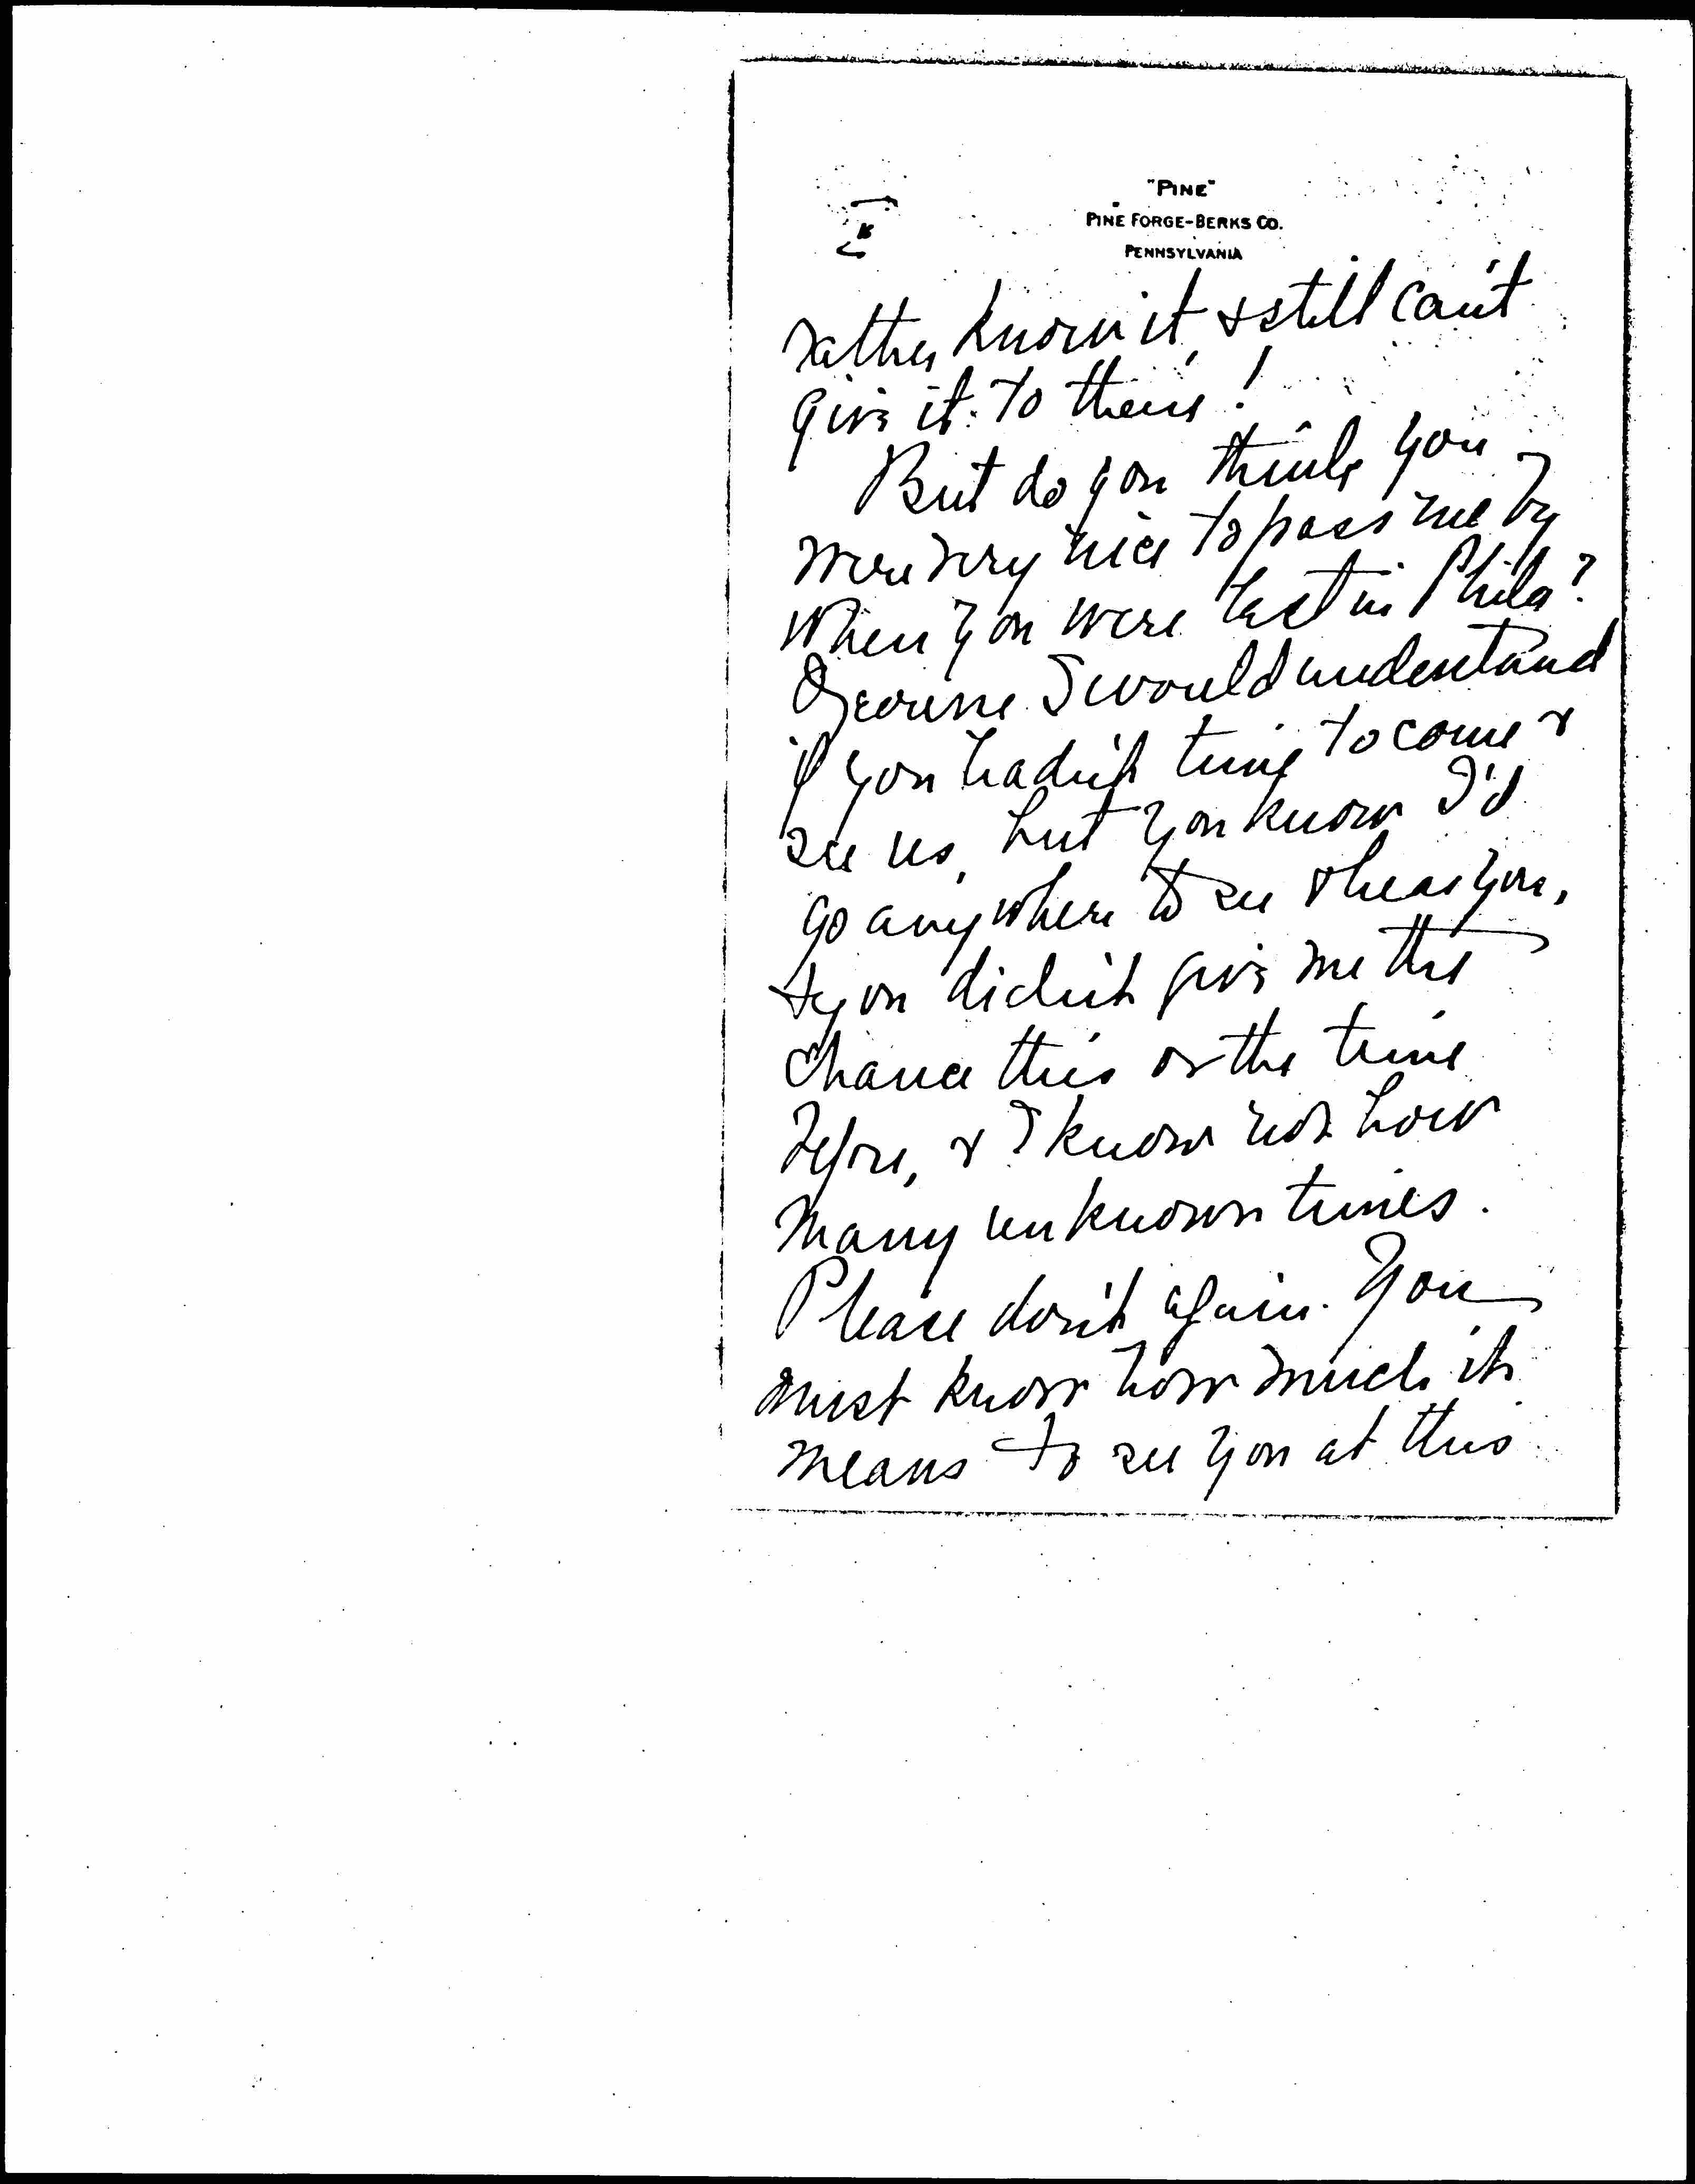 "PINE"
PINE FORGE-BERKS CO.
PENNSYLVANIA
rather know it, & still can't
give it to them!
But do you think you
were very nice to pass me by
when you were last in Phila?
Of course I would understand
if you hadn't time to come &
see us, but you know I'd
go anywhere to see & hear you,
& you didn't give me the
chance this or the time
before, & I know not how
many unknown times.
Please don't again. You
must know how much it
means to see you at this